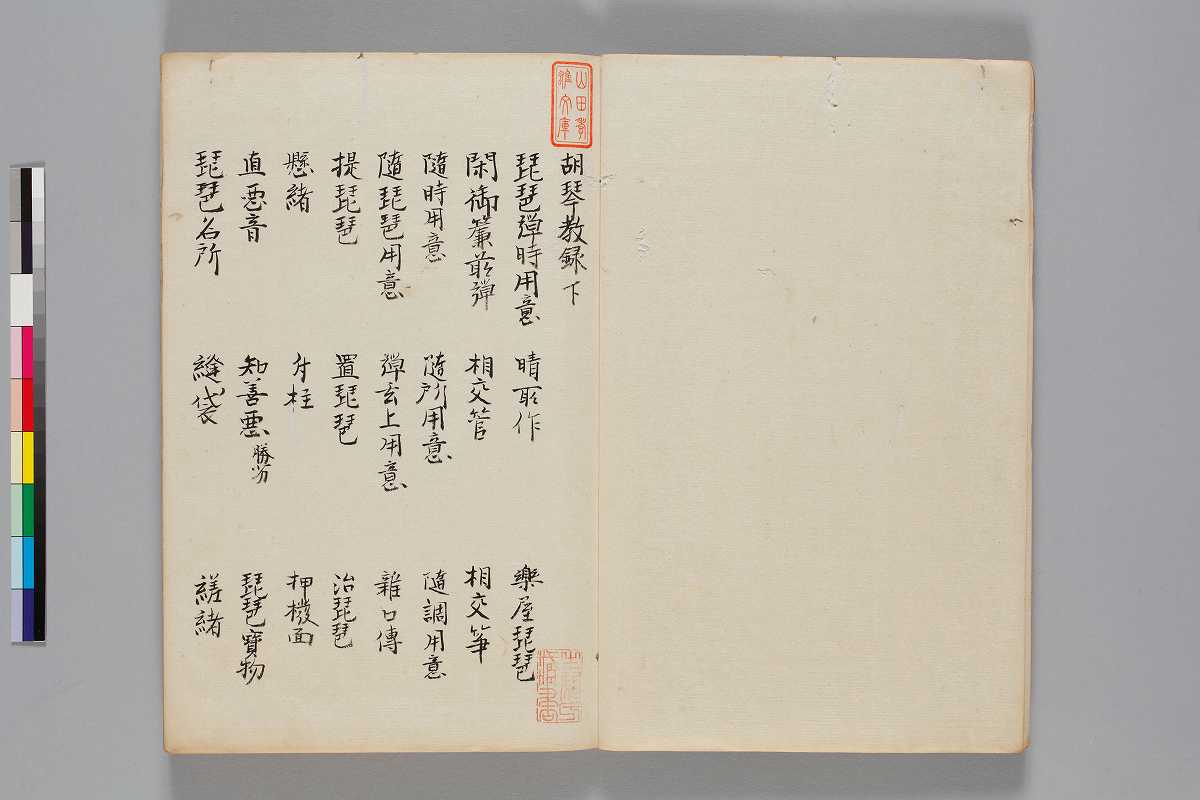 胡琴教録下
琵琶彈時用意 晴所作 樂屋琵琶
閑御簾前彈 相交管 相交箏
隨時用意 隨所用意 隨調用意
隨琵琶用意 彈玄上用意 雜口傳
提琵琶 置琵琶 治琵琶
懸緒 付柱 押撥面
直惡音 知善惡 勝劣 琵琶寶物
琵琶名所 縫袋 縒緒
山田孝雄文庫